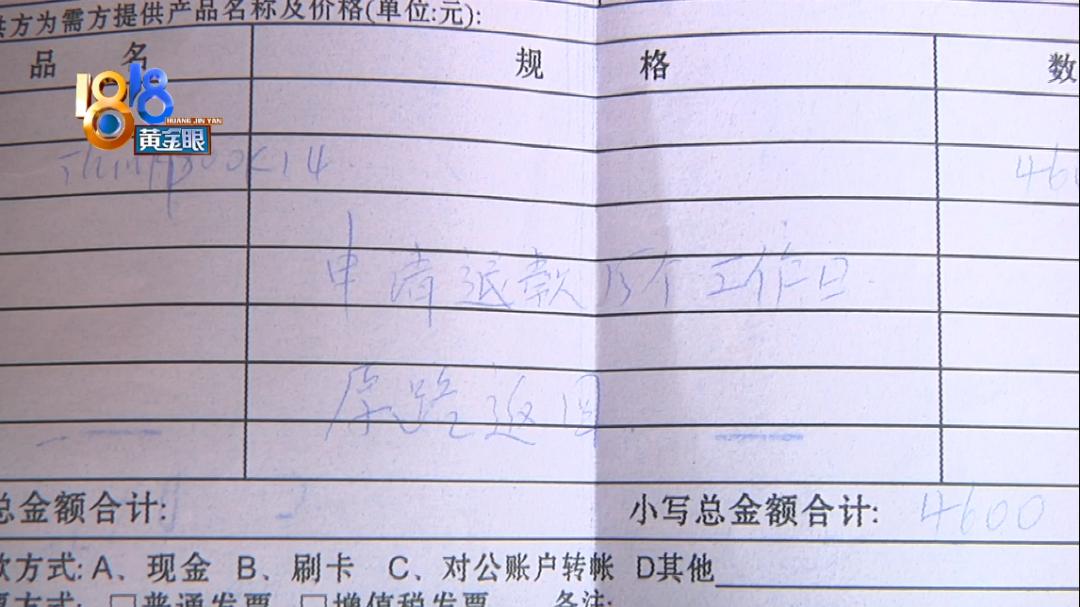 供方为需方提供产品名称及价格(单位:元):
品 名 规 格 数
1818
HUANG JIN YAN
黄金眼
Thinkbook14 460
申请退款15个工作日
原路返回
总金额合计: 小写总金额合计: 4600
款方式: A、现金 B、刷卡 C、对公账户转帐 D其他
票方式: □普通发票 □增值税发票 备注: